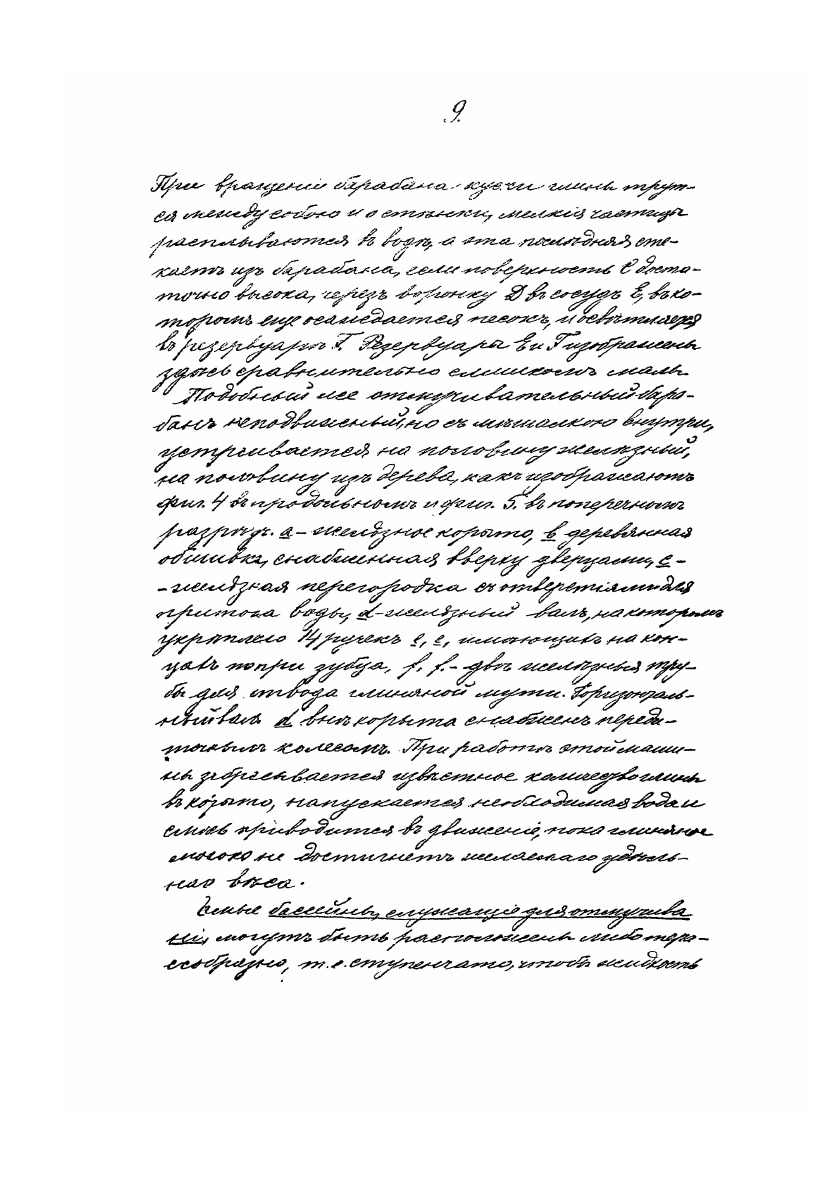 9.
При вращеніи барабана куски глины трут-
ся между собою и о стѣнки, мелкія частицы
расплываются въ водѣ, а эта послѣдняя сте-
каетъ изъ барабана, если поверхность C доста-
точно высока, черезъ воронку D въ сосудъ E, въ ко-
торомъ еще осаждается песокъ, и освѣтляется
въ резервуарѣ F. Резервуары E и F изображены
здѣсь сравнительно слишкомъ малы.
Подобный же отмучивательный бара-
банъ неподвижный, но съ мѣшалкою внутри,
устраивается на половину желѣзный,
на половину изъ дерева, какъ изображаютъ
фиг. 4 въ продольномъ и фиг. 5. въ поперечномъ
разрѣзѣ. a – желѣзное корыто, b деревянная
обшивка, снабженная вверху дверцами, c –
– желѣзная перегородка съ отверстіями для
притока воды, d – желѣзный валъ, на которомъ
укрѣплено 14 ручекъ e, e, имѣющихъ на кон-
цахъ по три зубца, f, f. – двѣ желѣзныя тру-
бы для отвода глиняной мути. Горизонталь-
ный валъ d внѣ корыта снабженъ переда-
точнымъ колесомъ. При работѣ этой маши-
ны забрасывается извѣстное количество глины
въ корыто, напускается необходимая вода и
смѣсь приводится въ движеніе, пока глиняное
молоко не достигнетъ желаемаго удѣль-
наго вѣса.
Самые бассейны, служащіе для отмучива
нія, могутъ быть расположены либо терра-
сообразно, т.е. ступенчато, чтобы жидкость